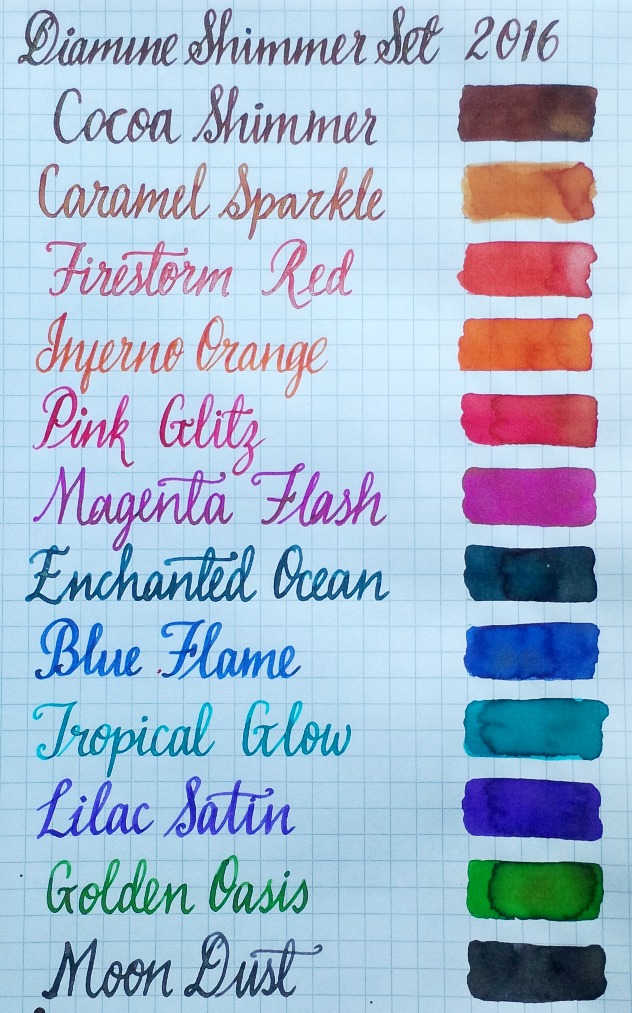 Diamine Shimmer Set 2016
Cocoa Shimmer
Caramel Sparkle
Firestorm Red
Inferno Orange
Pink Glitz
Magenta Flash
Enchanted Ocean
Blue Flame
Tropical Glow
Lilac Satin
Golden Oasis
Moon Dust